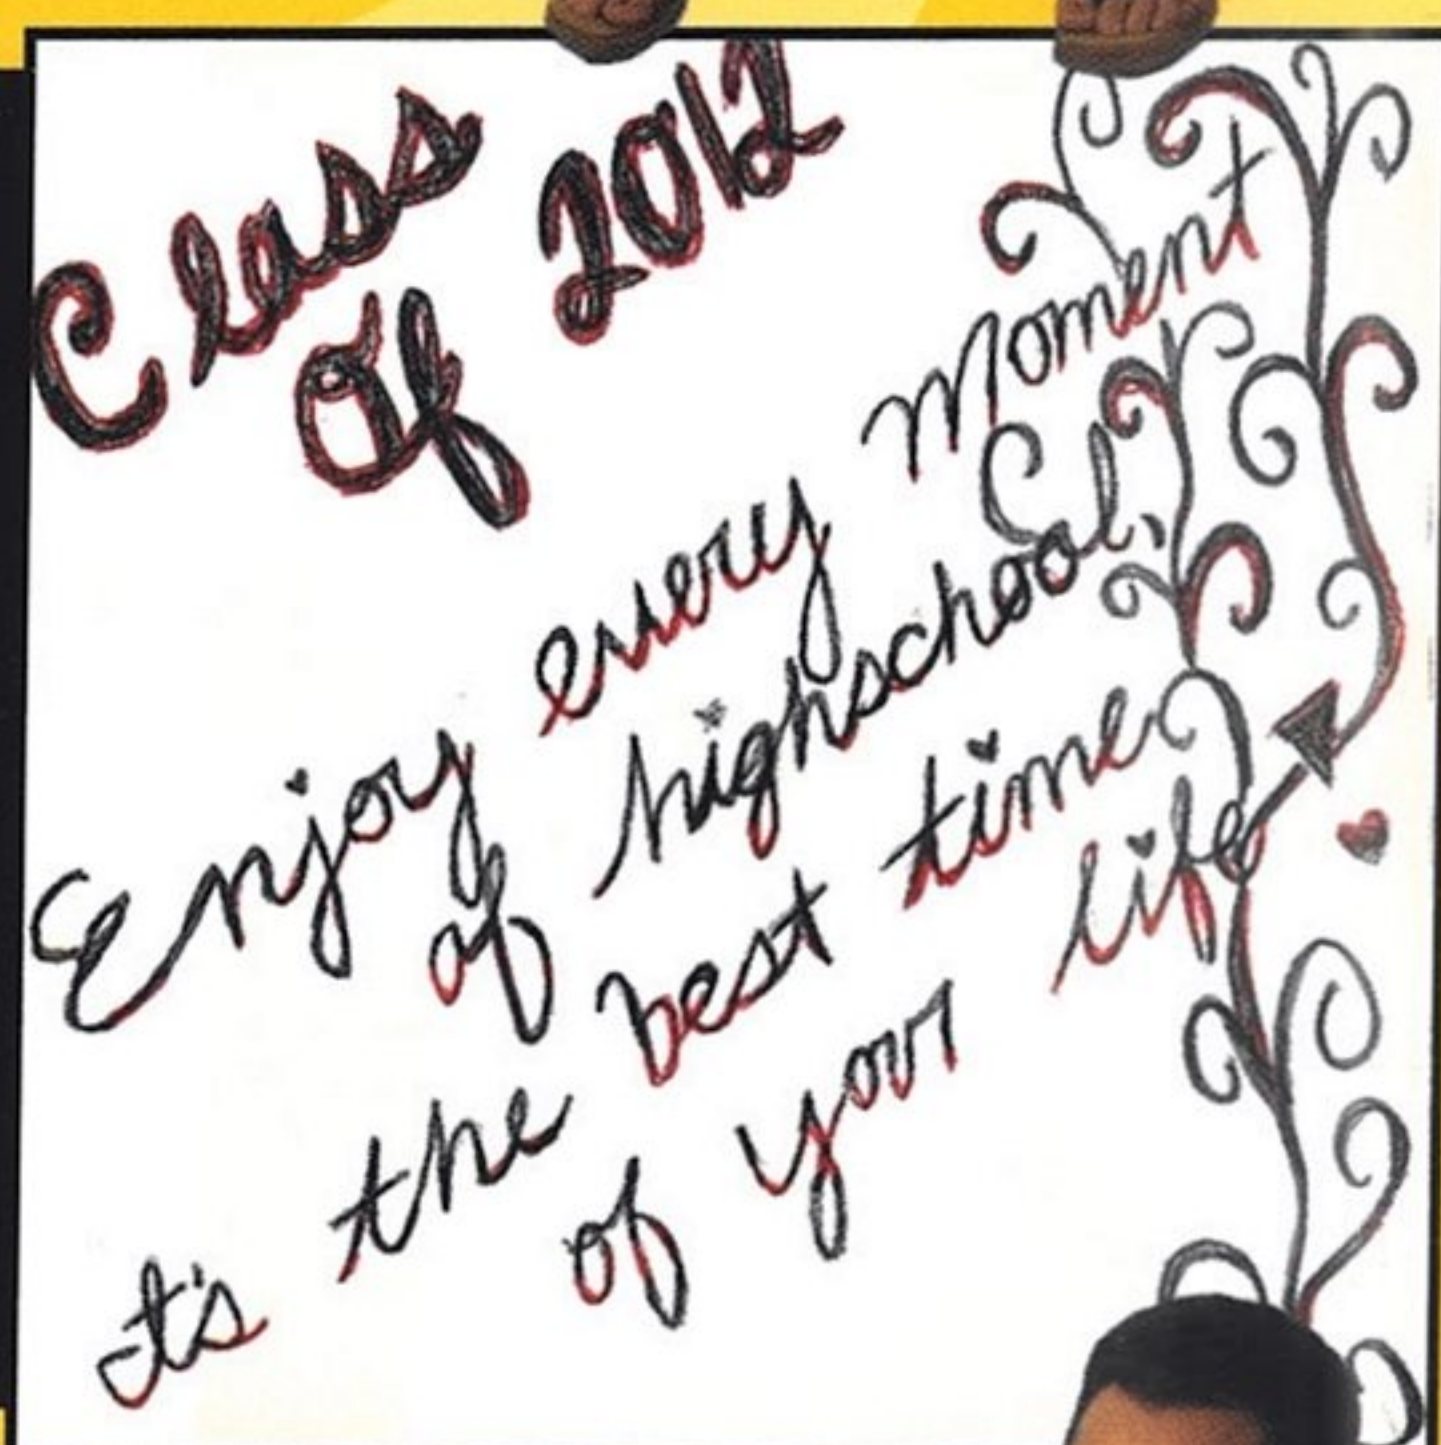 Class
Of 2012
Enjoy every moment
of highschool,
it's the best time
of your life